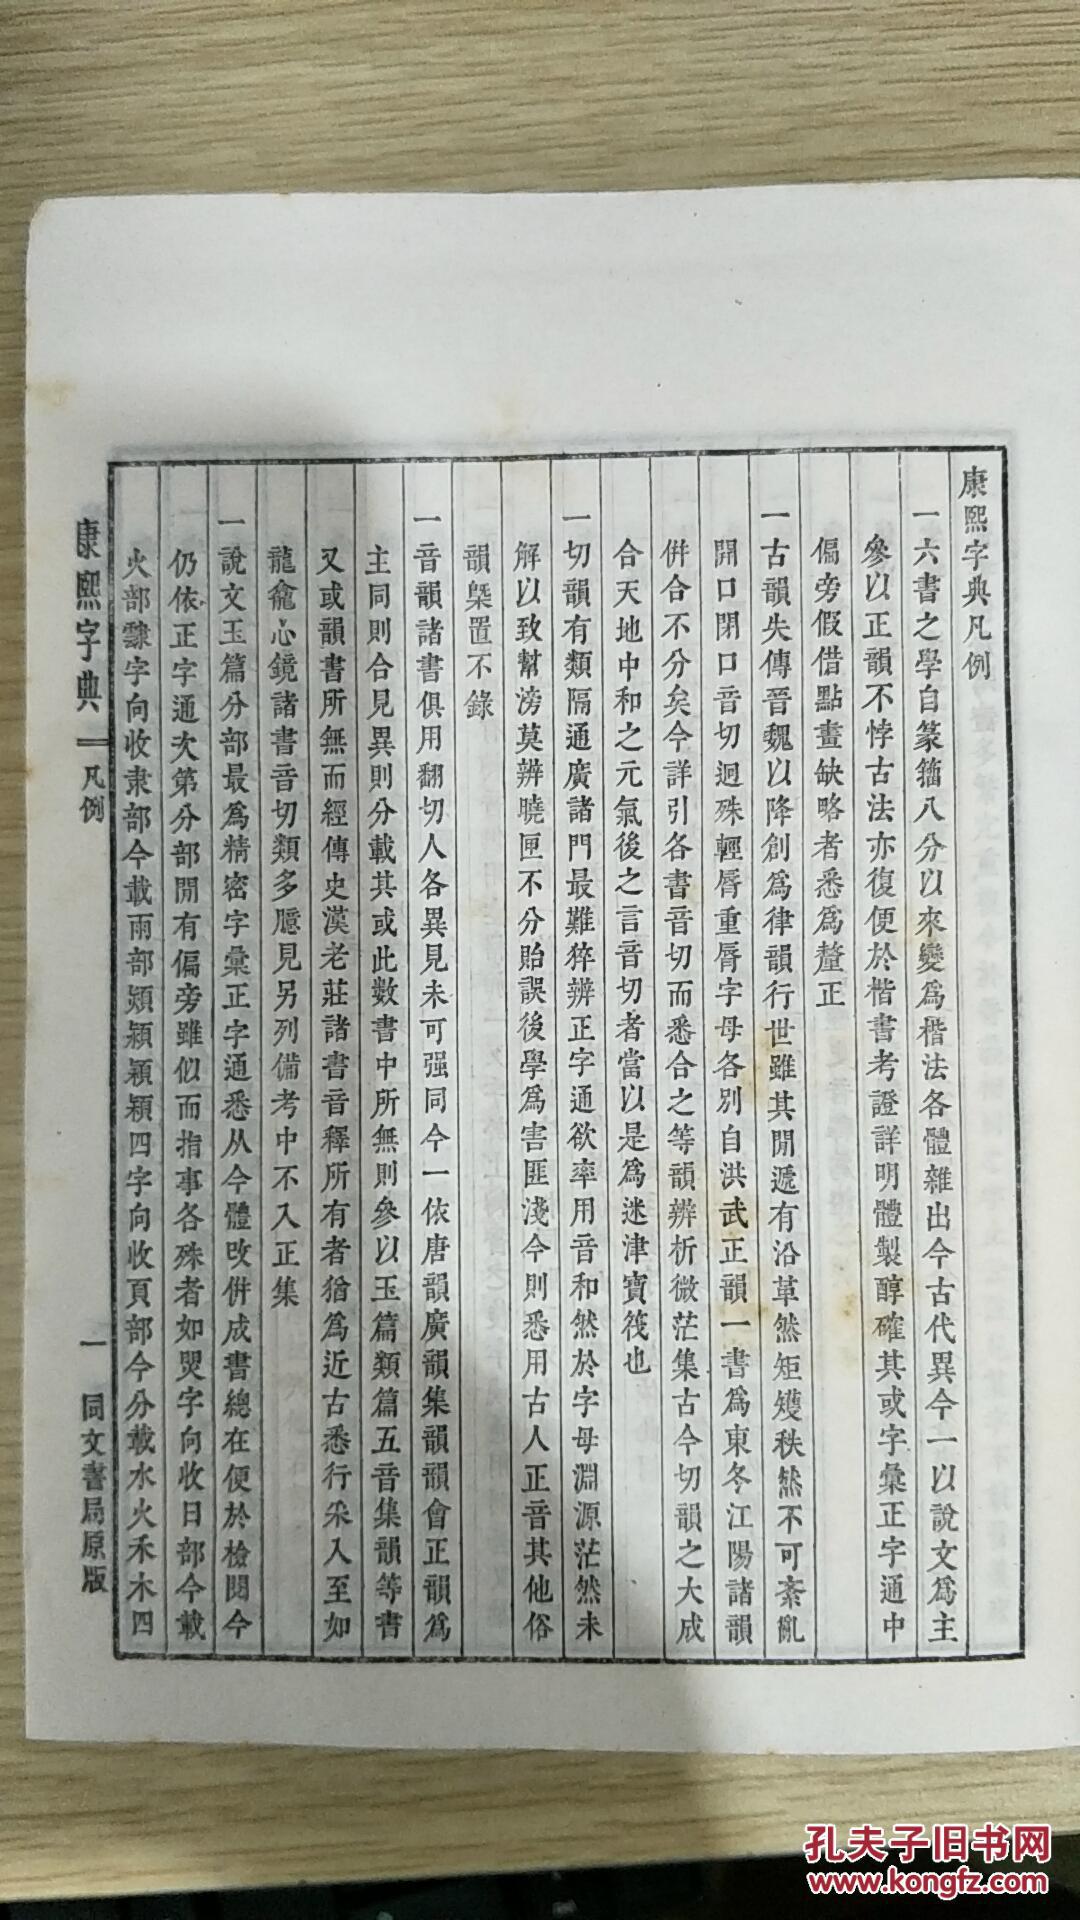 康熙字典凡例
一六書之學自篆籒八分以來變爲楷法各體雜出今古代異今一以說文爲主
參以正韻不悖古法亦復便於楷書考證詳明體製醇確其或字彙正字通中
偏旁假借點畫缺略者悉爲釐正
一古韻失傳晉魏以降創爲律韻行世雖其閒遞有沿革然矩矱秩然不可紊亂
開口閉口音切迥殊輕脣重脣字母各別自洪武正韻一書爲東冬江陽諸韻
倂合不分矣今詳引各書音切而悉合之等韻辨析微茫集古今切韻之大成
合天地中和之元氣後之言音切者當以是爲迷津寶筏也
一切韻有類隔通廣諸門最難猝辨正字通欲率用音和然於字母淵源茫然未
解以致幫滂莫辨曉匣不分貽誤後學爲害匪淺今則悉用古人正音其他俗
韻槩置不錄
一音韻諸書俱用翻切人各異見未可强同今一依唐韻廣韻集韻韻會正韻爲
主同則合見異則分載其或此數書中所無則參以玉篇類篇五音集韻等書
又或韻書所無而經傳史漢老莊諸書音釋所有者猶爲近古悉行采入至如
龍龕心鏡諸書音切類多臆見另列備考中不入正集
一說文玉篇分部最爲精密字彙正字通悉从今體改倂成書總在便於檢閱今
仍依正字通次第分部閒有偏旁雖似而指事各殊者如煛字向收日部今載
火部隸字向收隶部今載雨部潁熲穎穎四字向收頁部今分載水火禾木四
康熙字典
凡例
一
同文書局原版
孔夫子旧书网
www.kongfz.com